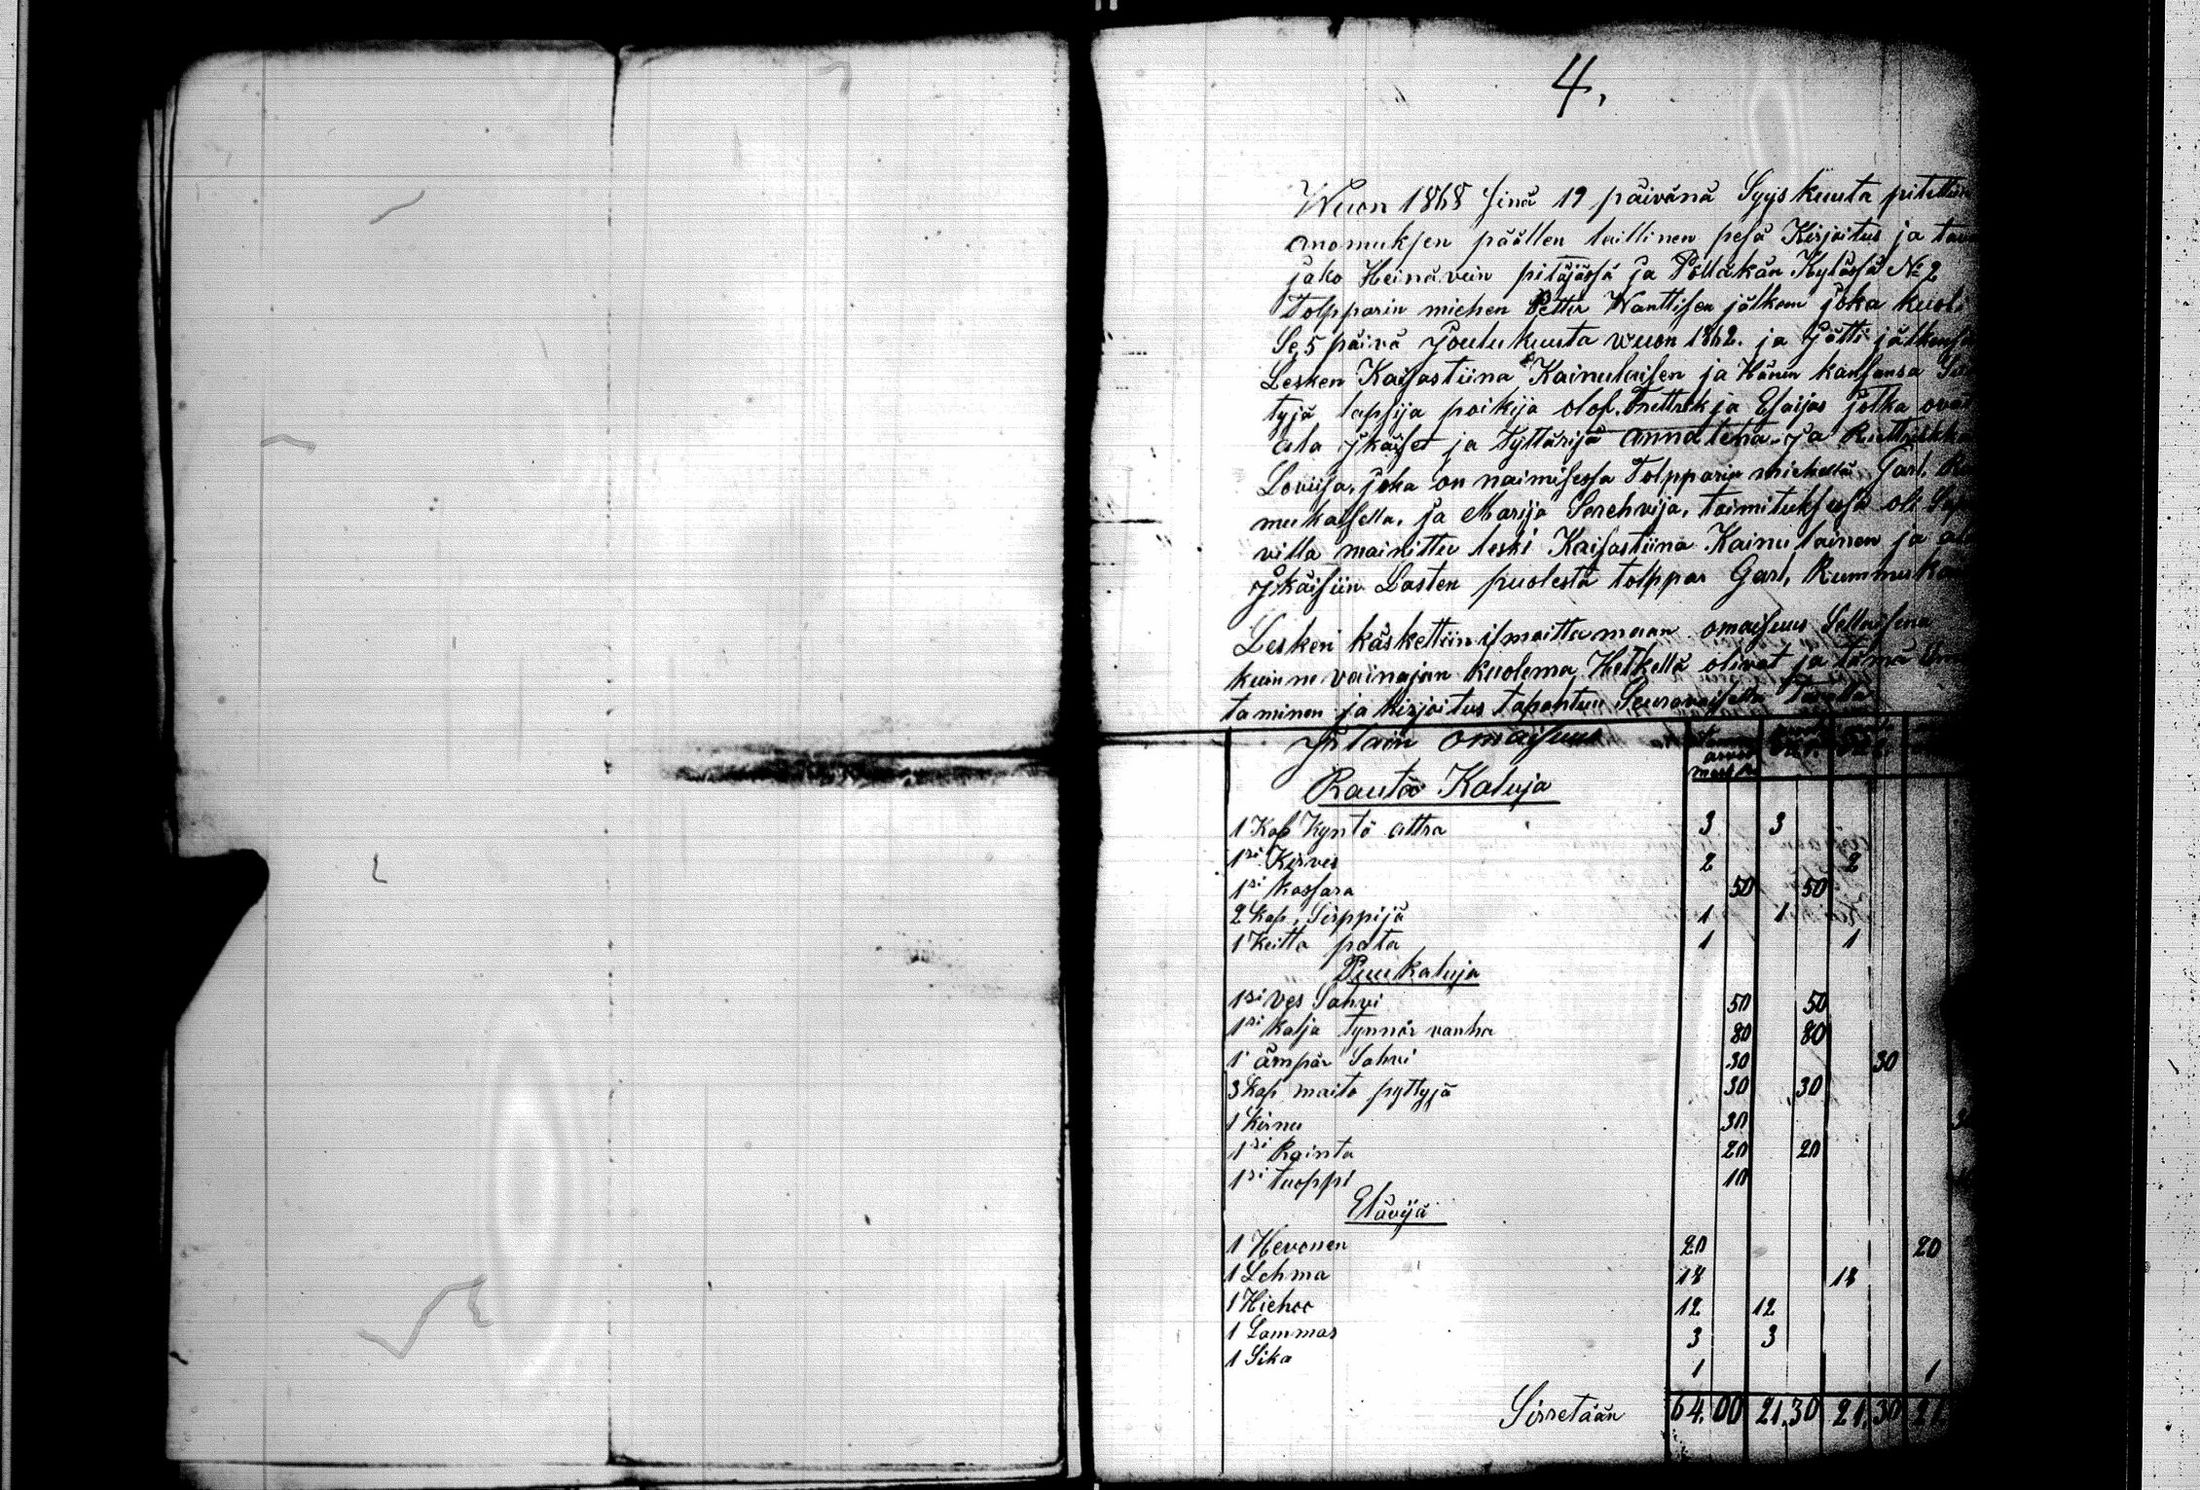 4.
Wuon 1868 sinä 19 päivänä Syyskuuta pitettiin
anomuksen päällen laillinen pesä Kirjoitus ja
jako Heinävein pitäjässä ja Pölläkän Kylässä No 2
Tolpparin miehen Petter Wanttisen jälkeen joka kuoli
Se 5 päivä Joulukuuta wuon 1862. ja Jätti jälkeensä
Lesken Kaisastiina Kainulaisen ja Hänen kanssansa
tyjä lapsija poikija olof. Frettrik ja Esaijas jotka ovat
ala jkäiset ja Tyttärijä anna lena ja
Loviisa. joka on naimisessa Tolpparin miehellä Garl.
mukaisella. ja Marija Serehvija. toimituksessa oli
villa mainittu leski Kaisastiina Kainulainen ja ala
jkäisiin Lasten puolesta tolppar Garl. Rummukai
Lesken käskettiin ilmoittamaan omaisuus Sellaisena
kuin ne vainajan kuolema Hetkellä olivat ja tämä
taminen ja kirjoitus tapahtuu Seuraavaisella Tavalla
Jrtain omaisuus
Rautaa Kaluja
1 Kap Kyntö attra 3 3
1si Kirves 2 2
1si kassara 50 50
2 kap. Sirppijä 1 1
1 Keitta pata 1 1
Puukaluja
1si ves Sahvi 50 50
1si kalja tynnär vanha 80 80
1 ämpär Sahvi 30 30
3 kap maito pyttyjä 30 30
1 kirnu 30
1si Rainta 20 20
1si tuoppi 10
Eläviä
1 Hevonen 20 20
1 Lehma 18 18
1 Hiehoo 12 12
1 Lammas 3 3
1 Sika 1 1
Siirretään 64.00 21.30 21.30 21